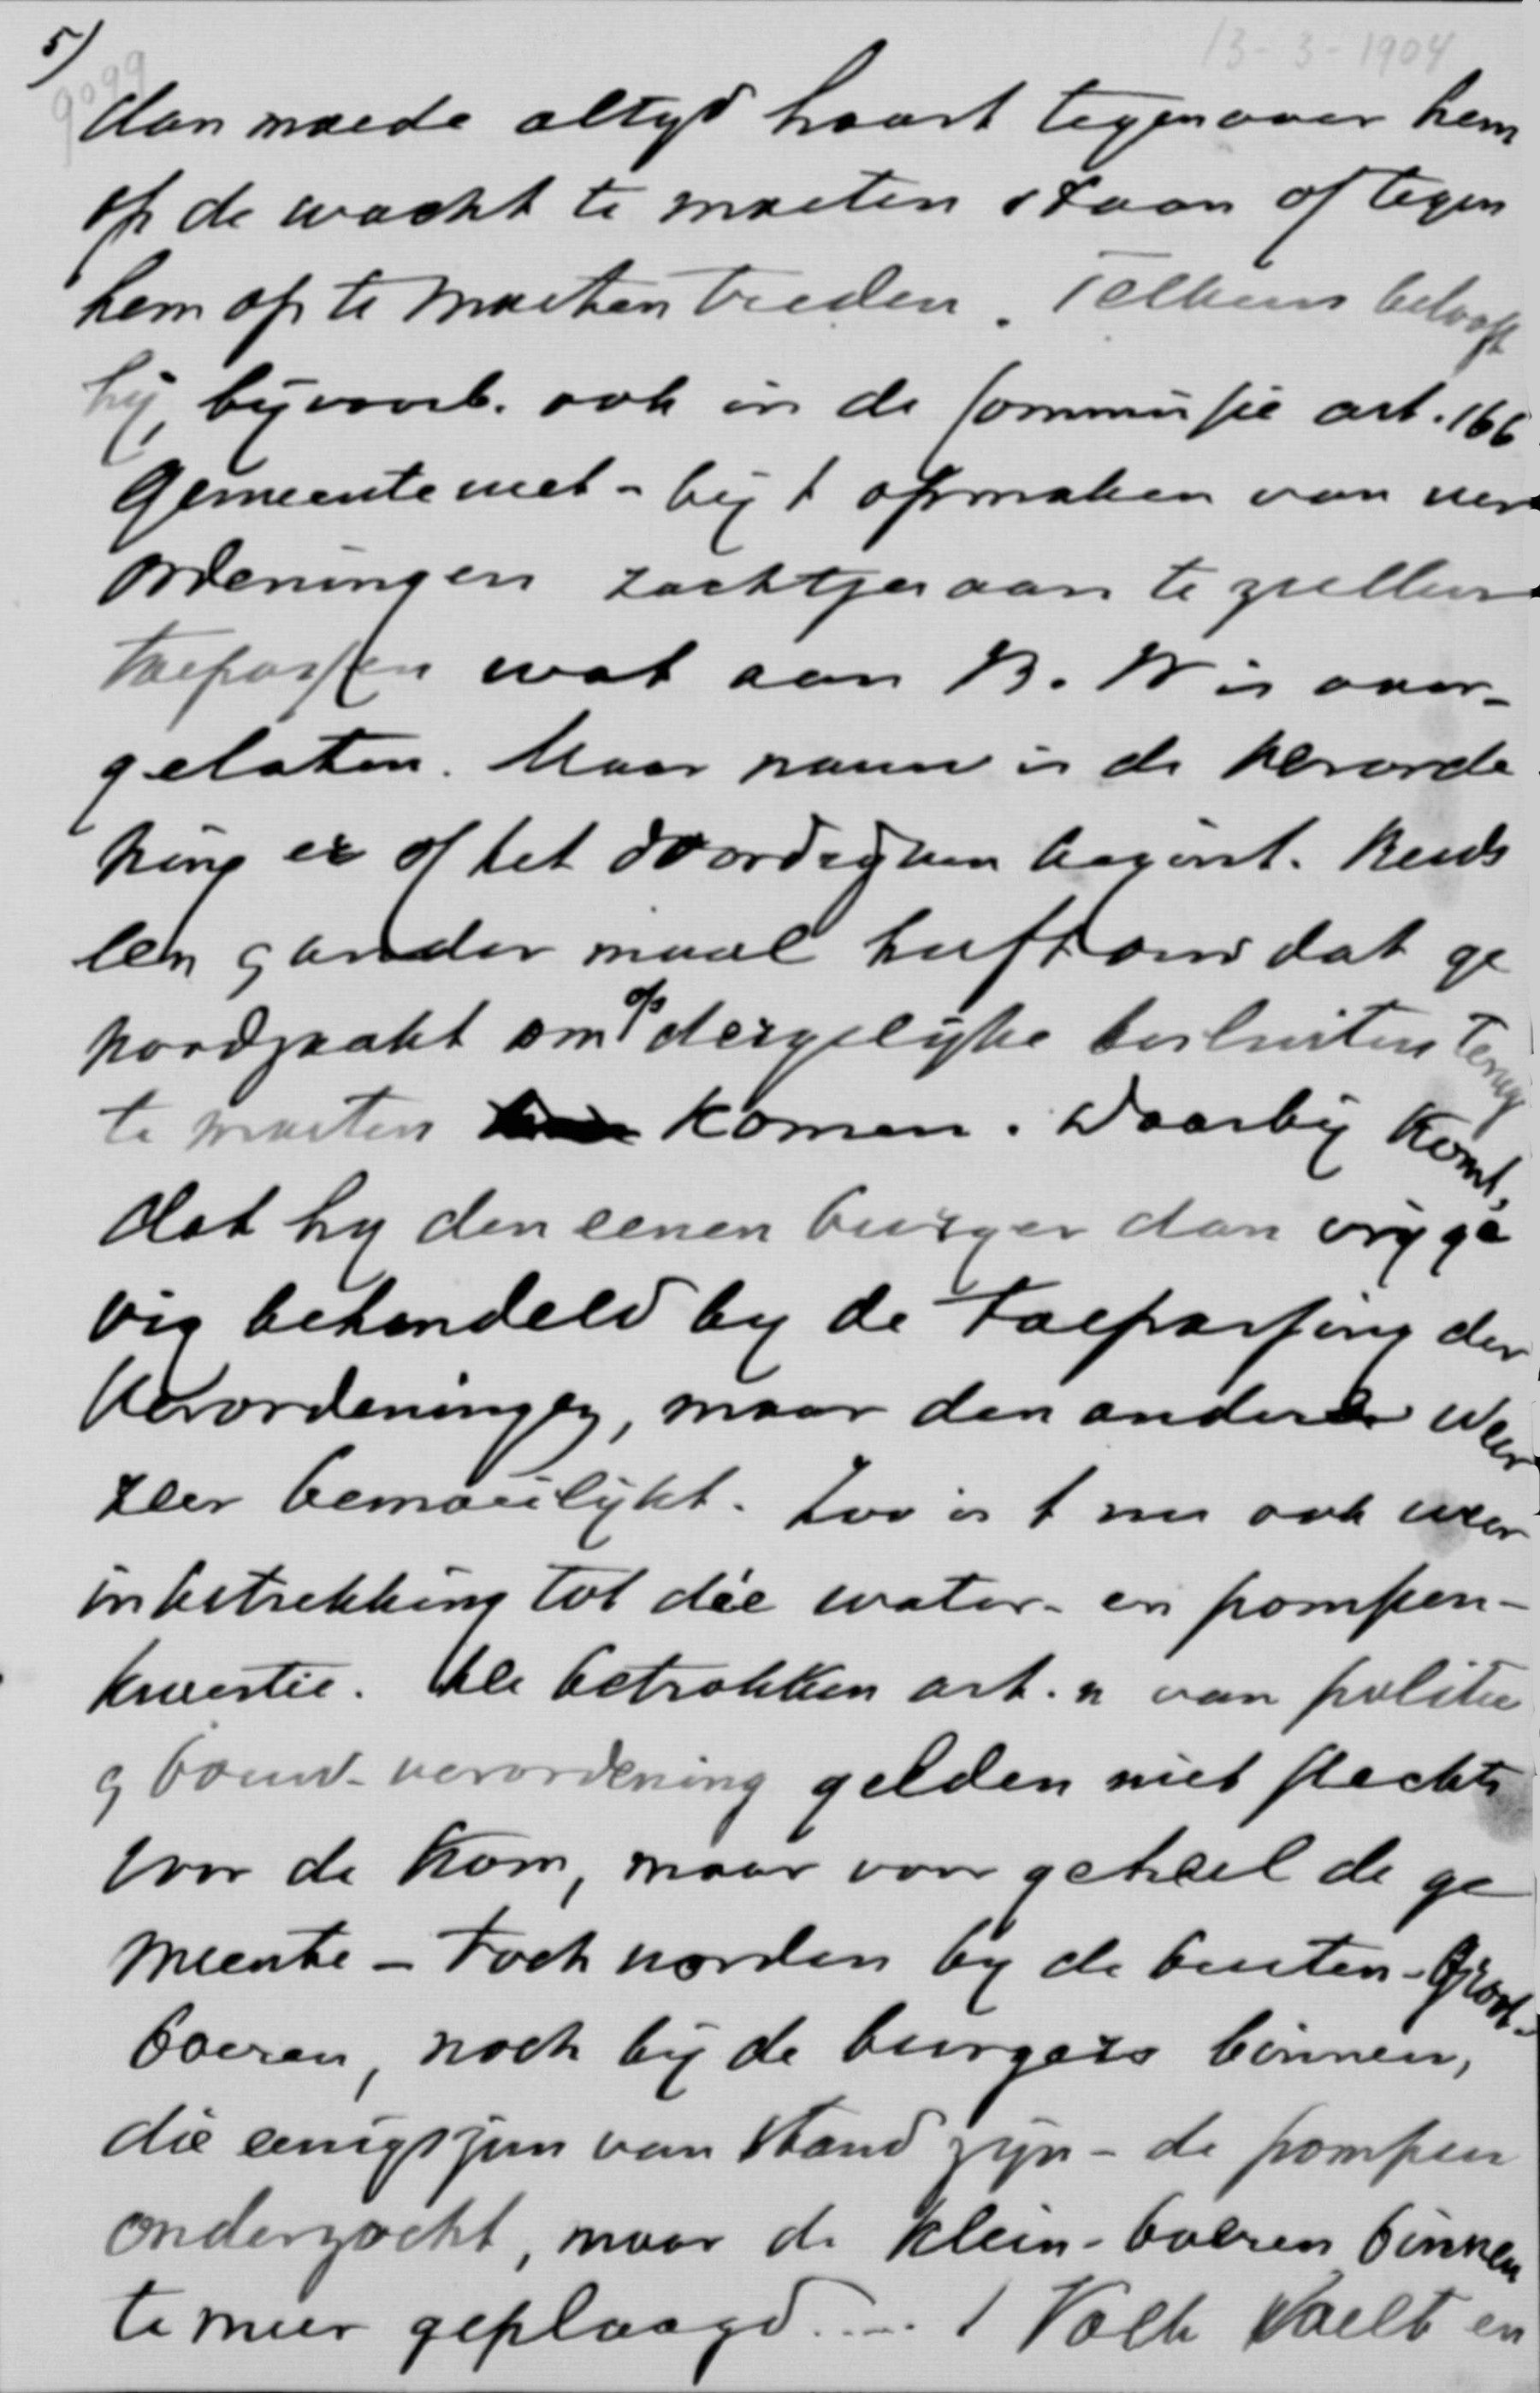 5)
13-3-1904
9099
dan moede altyd haast tegenover hem
op de wacht te moeten staan of tegen
hem op te moeten treden. Telkens belooft
hij, bijvoorb. ook in de Commissie art. 166
Gemeentewet - bij t opmaken van ver
ordeningen zachtjesaan te zullen
toepassen wat aan B. W is over-
gelaten. Maar nauw is de verorde
ning er of het doordrijven begint. Reeds
een g ander maal heeft ons dat ge
noodzaakt om op dergelijke besluiten terug
te moeten komen. Daarbij komt,
dat hy den eenen burger dan vrijge
vig behandeld by de toepassing der
Verordeningen, maar den anderen weer
zeer bemoeilijkt. Zoo is t nu ook weer
in betrekking tot die water- en pompen-
kwestie. De betrokken art.n van politie
g bouw-verordening gelden niet slechts
voor de Kom, maar voor geheel de ge
meente - toch worden by de buiten-Groot-
boeren, noch bij de burgers binnen,
die eenigszins van stand zijn - de pompen
onderzocht, maar de klein-boeren binnen
te meer geplaagd..... t Volk voelt en